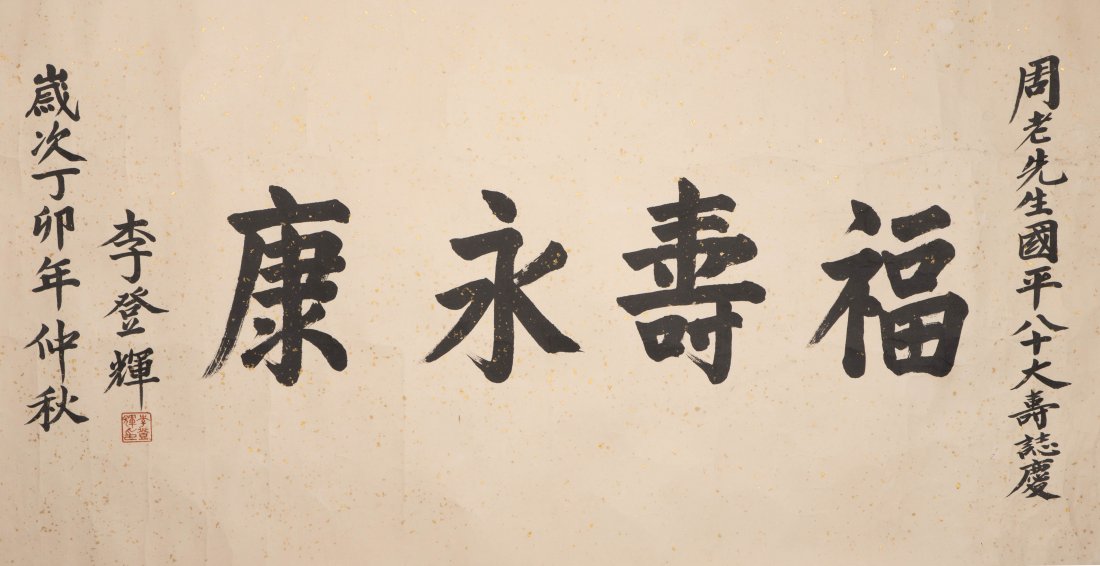 周老先生國平八十大壽誌慶
福壽永康
李登輝
歲次丁卯年仲秋